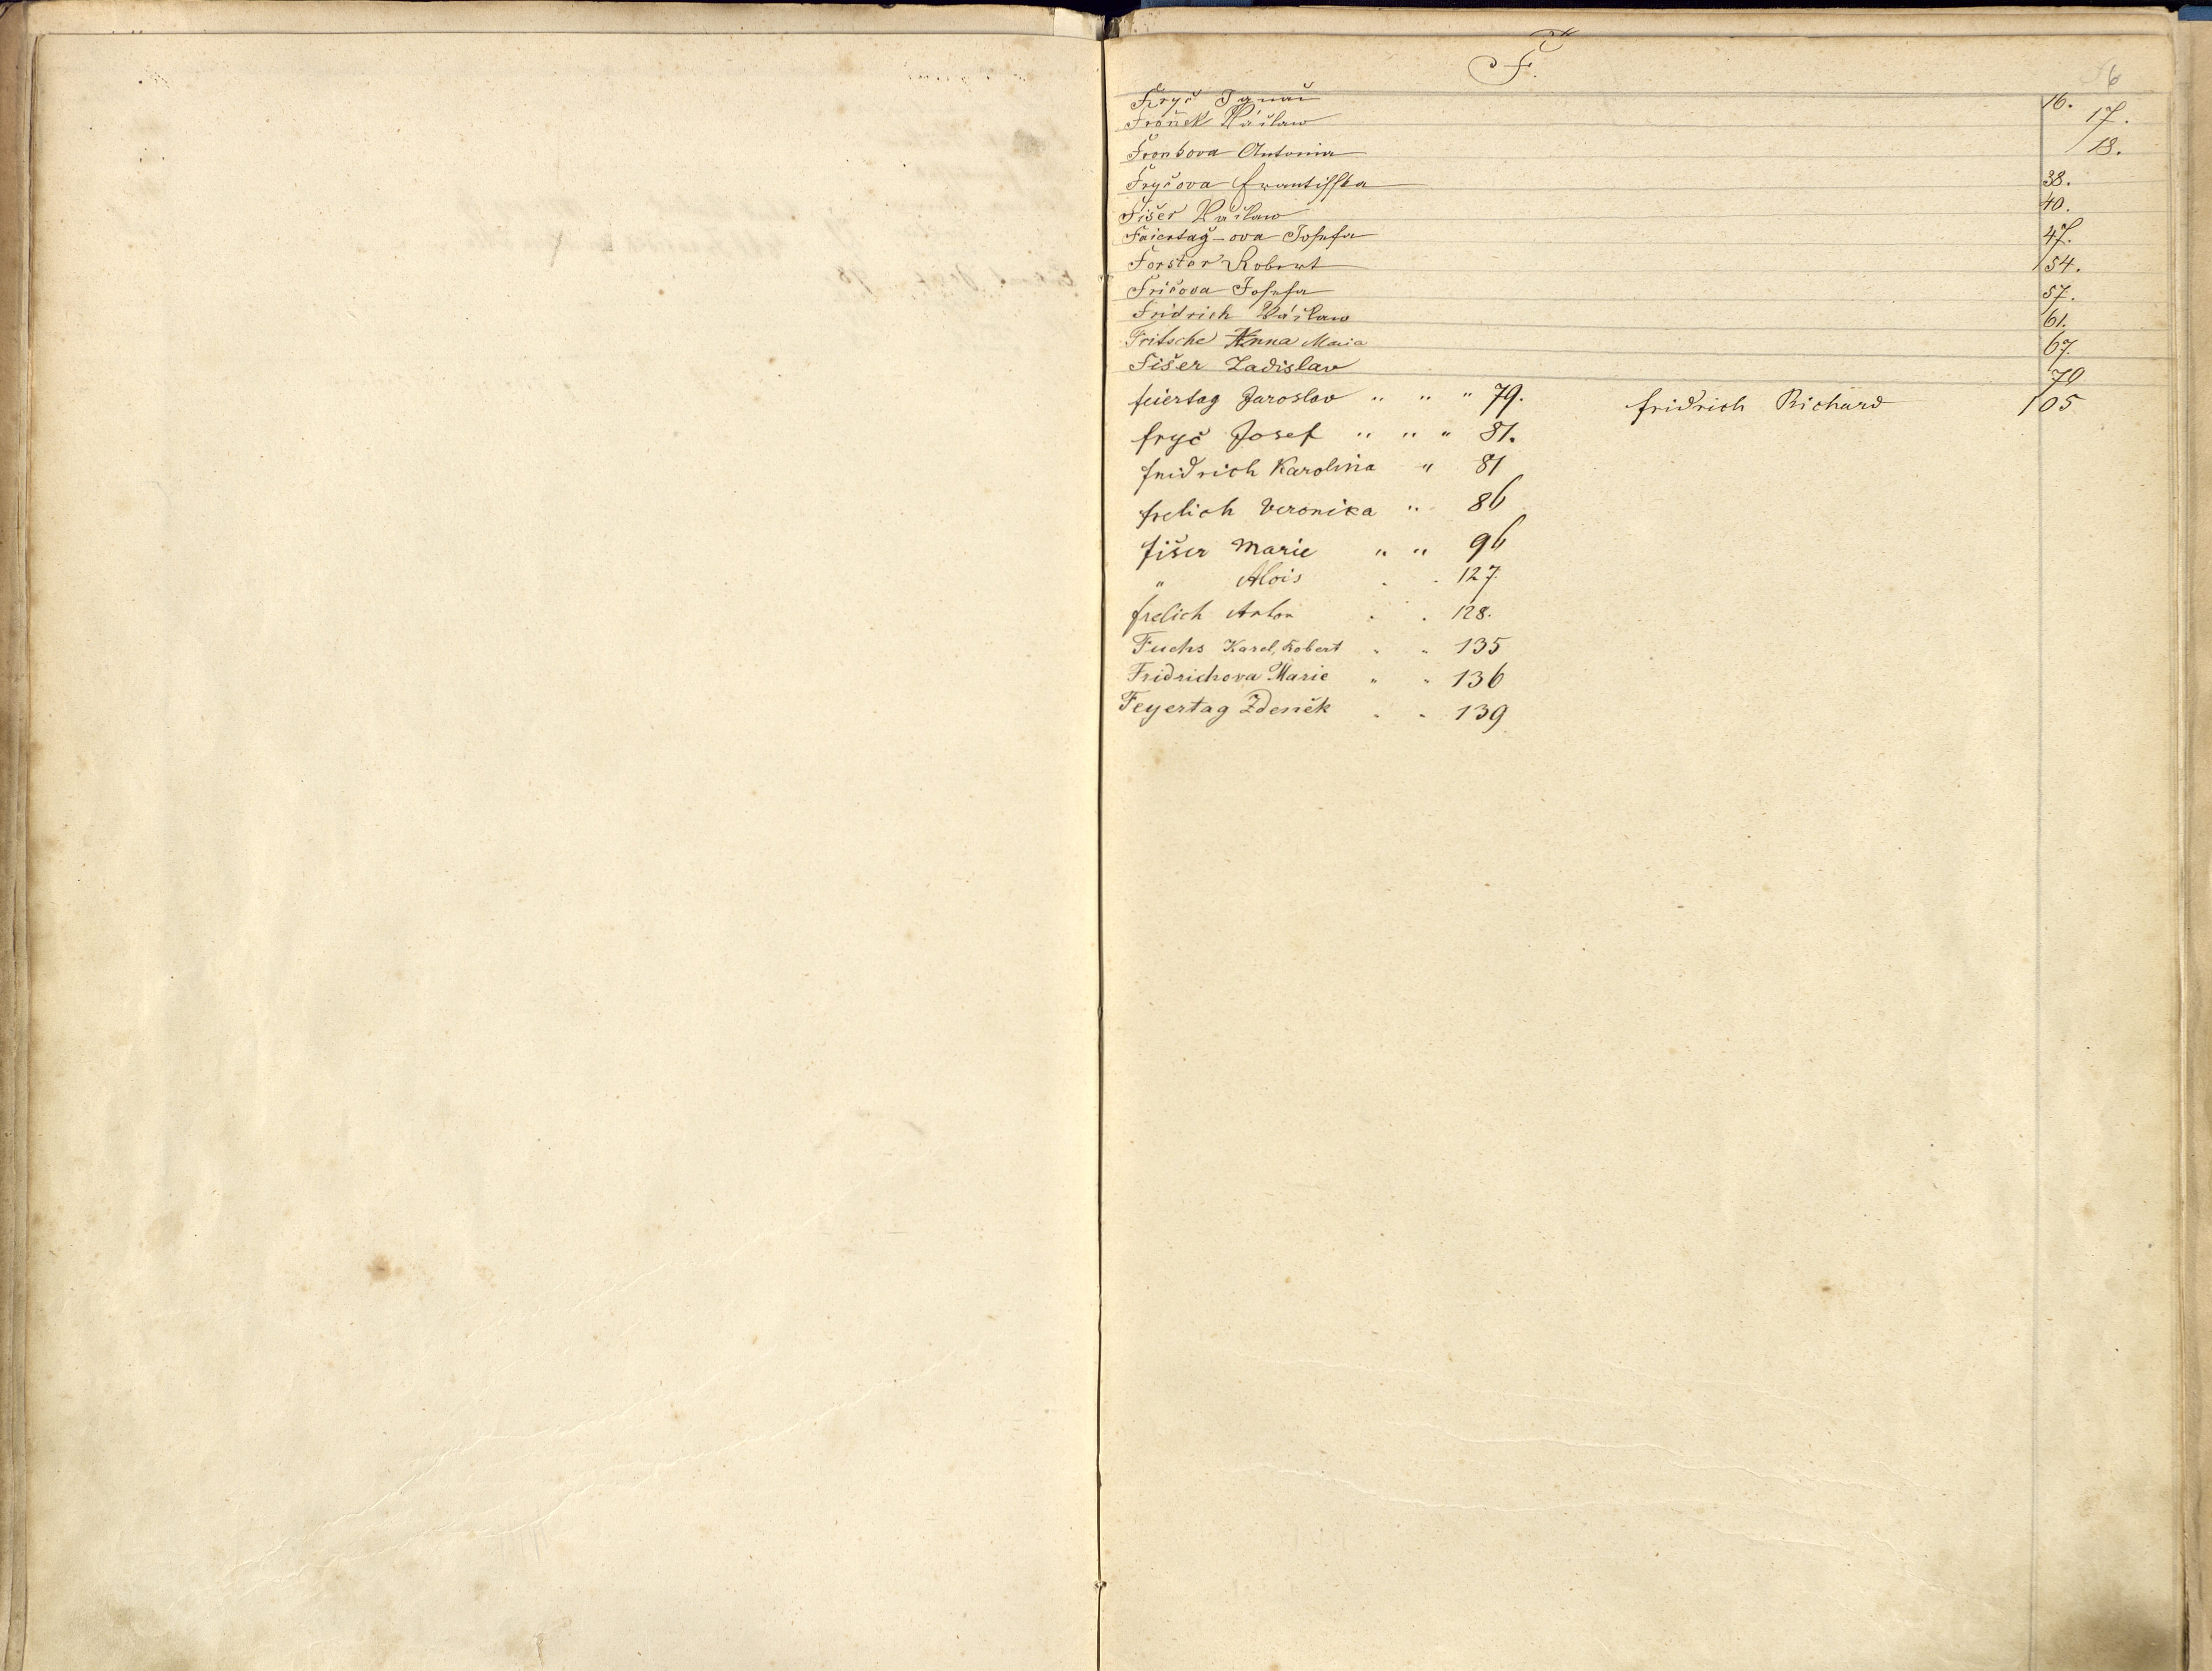 F.
6
Fryč Ignac 16.
Froněk Václaw 17.
Fronkova Antonia 18.
Fryčova Frantisska 38.
Fišer Václaw 40.
Faiertag-ova Josefa 47.
Forster Robert 54.
Fričova Josefa 57.
Fridrich Václaw 61.
Fritsche Anna Maria 67.
Fišer Ladislav 70
feiertag Jaroslav " " " 79. fridrich Richard 105
fryč Josef " " " 81.
fridrich Karolina " 81
frelich Veronika " 86
fišer Marie " " 96
" Alois . . 127.
frelich Anton . . 128.
Fuchs Karel, Robert " " 135
Fridrichova Marie " " 136
Feyertag Zdeněk . . 139